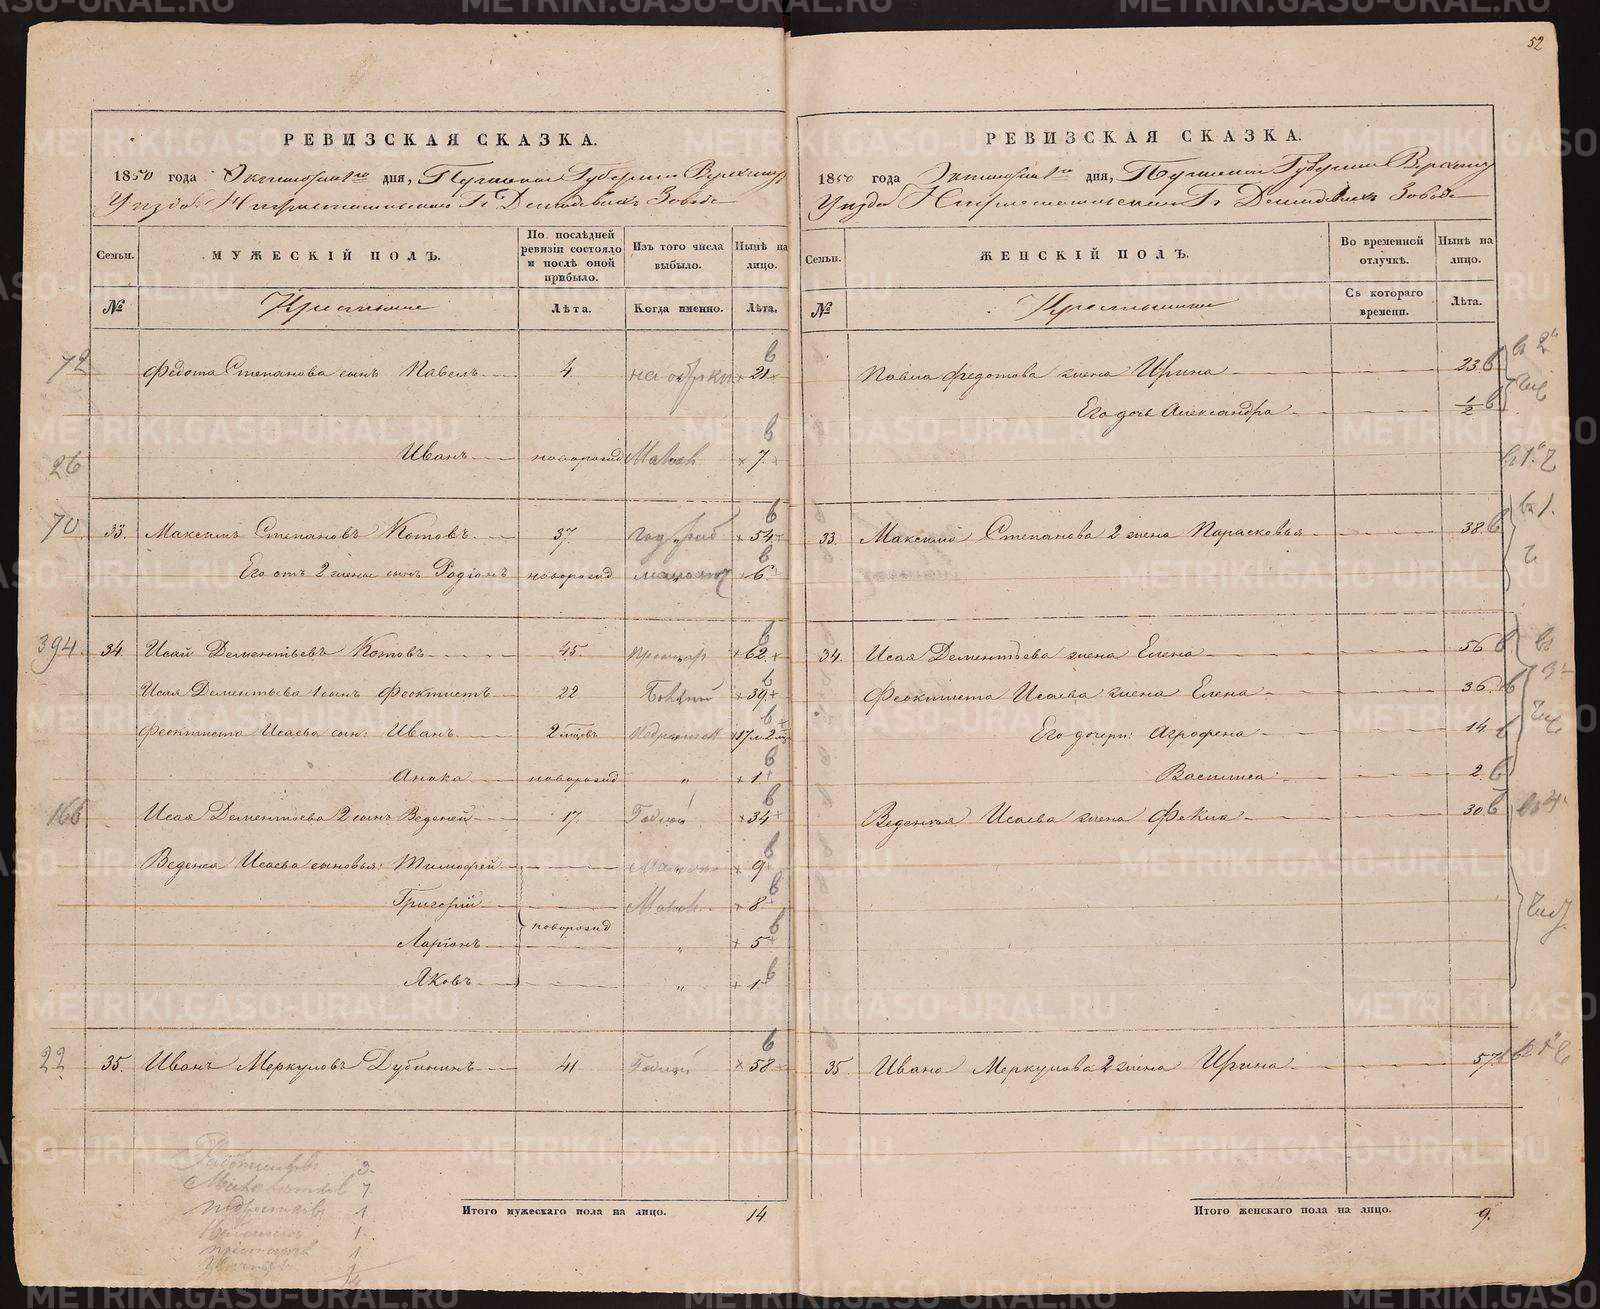 52
РЕВИЗСКАЯ СКАЗКА.
1850 года Октября 1го дня, Пермской Губернии Верхотур
Уезда Нижнетагильскаго Гг Демидовыхъ Завода
Семьи.
МУЖЕСКІЙ ПОЛЪ.
По послѣдней ревизіи состояло и послѣ оной прибыло.
Изъ того числа выбыло.
Нынѣ на лицо.
№
Крестьяне
Лѣта.
Когда именно.
Лѣта.
72 Федота Степанова сынъ Павелъ 4 21
26 Иванъ новорожд Малол 7
70 33. Максимъ Степановъ Котовъ 37. 54
Его отъ 2 жены сынъ Родіонъ новорожд малолет 6
394 34. Исай Дементьевъ Котовъ 45. престар 62
Исая Дементьева 1 сынъ Феоктистъ 22 39
Феоктиста Исаева сын: Иванъ 2 мѣсцовъ Подросток 17 л. 2 мц
Аника новорожд „ 1
166 Исая Дементьева 2 сынъ Веденей 17. Годный 34
Веденея Исаева сыновья: Тимофей Малол 9
Григорій Малол 8
новорожд
Ларіонъ „ 5
Яковъ „ 1
22 35. Иванъ Меркуловъ Дубининъ 41 Годный 58
Работников 3
Малолетков 7
подростков 1
1
престарел 1
1
14
Итого мужескаго пола на лицо. 14
РЕВИЗСКАЯ СКАЗКА.
1850 года Октября 1го дня, Пермской Губернии Верхотур
Уезда Нижнетагильскаго Гг Демидовыхъ Завода
Семьи.
ЖЕНСКІЙ ПОЛЪ.
Во временной отлучкѣ.
Нынѣ на лицо.
№
Крестьянки
Съ котораго времени.
Лѣта.
Павла Федотова жена Ирина 23
Его дочь Александра 1/2
33. Максима Степанова 2 жена Парасковья 38
34. Исая Дементьева жена Елена 56
Феоктиста Исаева жена Елена 36
Его дочери: Агрофена 14
Василиса 2
Веденея Исаева жена Фекла 30
35 Ивана Меркулова 2 жена Ирина 57
Итого женскаго пола на лицо. 9.
METRIKI.GASO-URAL.RU